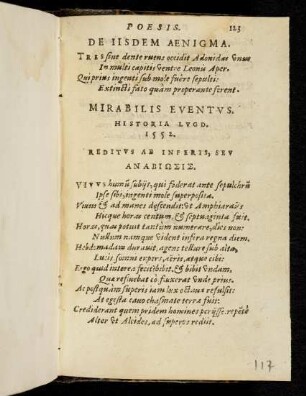 POESIS. 123
DE IISDEM AENIGMA.
TRES sine dente ruens occidit Adonidas vnus
In multi capitis ventre Leonis Aper.
Qui prius ingenti sub mole fuêre sepulti:
Extincti fato quàm properante forent.
MIRABILIS EVENTVS.
HISTORIA LVGD.
1552.
REDITVS AB INFERIS, SEV
ΑΝΑΒΙΩΣΙΣ.
VIVVS humū subijt, qui foderat ante sepulchrū
Ipse sibi, ingenti mole superpositâ.
Viuus & ad manes descendit: vt Amphiaraûs
Hucque horas centum, & septuaginta fuit.
Horas, quas potuit tantùm numerare, dies non:
Nullum namque vident infera regna diem.
Hebdomadam durauit, agens tellure sub alta,
Lucis, somni expers, aëris, atque cibi:
Ergo quod interea sit bibit, & bibit vndam,
Qua refluebat eò fluxerat vnde prius.
At postquàm superis iam lux octaua refulsit:
At egesta cauo chasmate terra fuit:
Crediderant quem pridem homines perijsse, repētè
Alter vt Alcides, ad superos redijt.
117